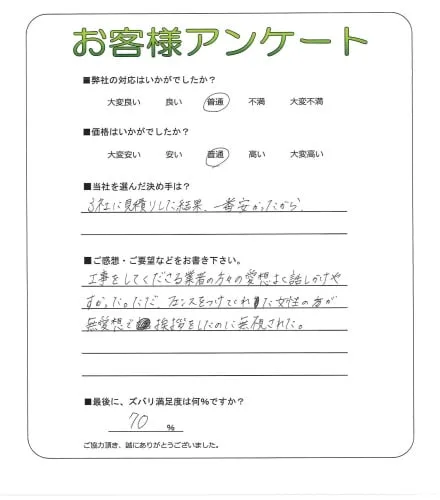 お客様アンケート
■弊社の対応はいかがでしたか?
大変良い 良い 普通 不満 大変不満
■価格はいかがでしたか?
大変安い 安い 普通 高い 大変高い
■当社を選んだ決め手は?
3社に見積りした結果、一番安かったから。
■ご感想・ご要望などをお書き下さい。
工事をしてくださる業者の方々の愛想よく話しかけや
すかった。ただ、フェンスをつけてくれた女性の方が
無愛想で挨拶をしたのに無視された。
■最後に、ズバリ満足度は何%ですか?
70 %
ご協力頂き、誠にありがとうございました。